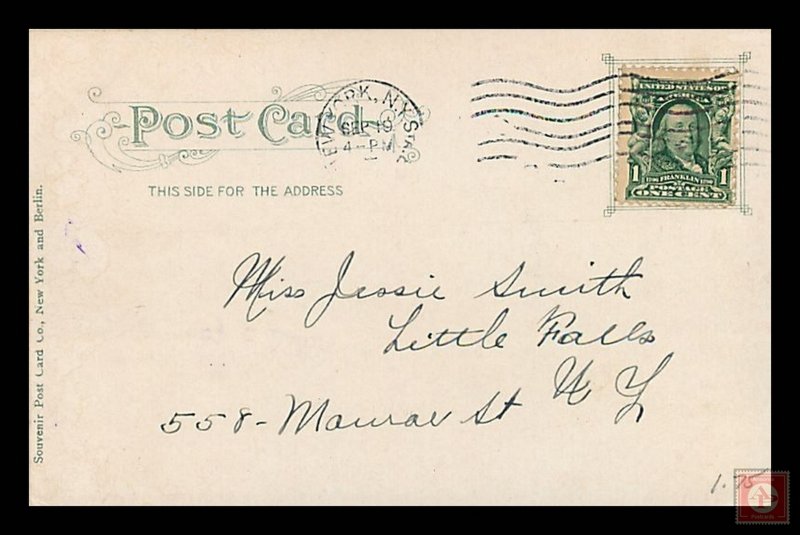 Post Card
THIS SIDE FOR THE ADDRESS
NEW YORK, N.Y. STA.
SEP 19
4-PM
UNITED STATES OF
1 FRANKLIN 1
POSTAGE
ONE CENT
Souvenir Post Card Co., New York and Berlin.
Miss Jessie Smith
Little Falls
N Y
558- Monroe St
1.75
Postcards